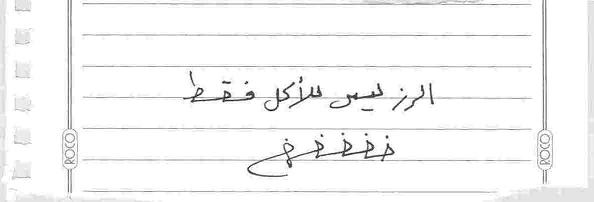 الرز ليس للأكل فقط
خخخخخ
ROCO
ROCO